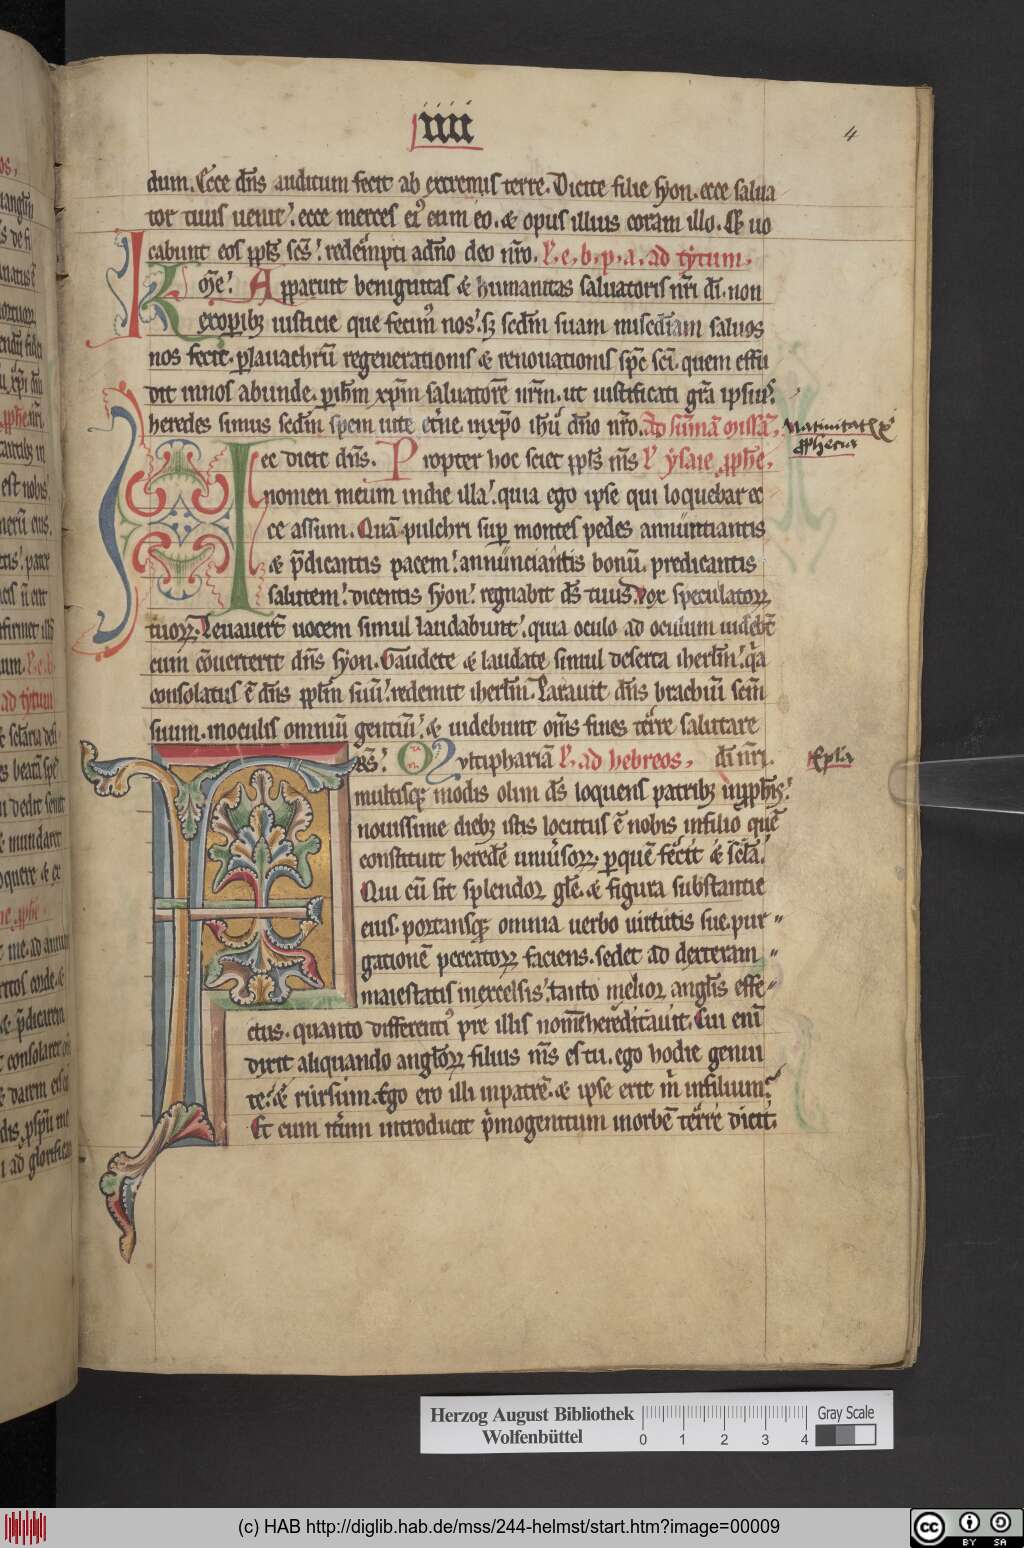 iiii
4
dum. Ecce dn̄s auditum fecit ab extremis terre. Dicite filie syon. ecce salua
tor tuus uenit. ecce merces ei⁹ cum eo. & opus illius coram illo. Et uo
cabunt eos ppl̄s sc̄s. redempti adn̄o deo nr̄o. l̄. e. b. p. a. ad tytum.
Kme. Apparuit benignitas & humanitas saluatoris nr̄i dī. non
exoꝑibꝫ iusticie que fecim⁹ nos. sꝫ scd̄m suam misc̄diam saluos
nos fecit. ꝑlauachrū regenerationis & renouationis sp̄c sc̄i. quem effu
dit innos abunde. ꝑih̄m xp̄m saluatorē nr̄m. ut iustificati gr̄a ipsius.
heredes simus scd̄m spem uite et̄ne. inxp̄o ih̄ū dn̄o nr̄o. Ad sūmā missā.
Natiuitat Xp̄i
ꝓphecia
ec dicit dn̄s. Propter hoc sciet ppl̄s ms̄ l̄ ysaie ꝓphe.
nomen meum indie illa. quia ego ipse qui loquebar ec
ce assum. Quā pulchri suꝑ montes pedes annuntiantis
& p̄dicantis pacem. annunciantis bonū. predicantis
salutem. dicentis syon. regnabit ds̄ tuus. Vox speculatoꝝ
tuoꝝ. Leuauert̄ uocem simul laudabunt. quia oculo ad oculum uidebt̄
cum cōuerterit dn̄s syon. Gaudete & laudate simul deserta iherl̄m. q̄a
consolatus ē dn̄s ppl̄m suū. redemit iherl̄m. Parauit dn̄s brachiū scm̄
suum. inoculis omniū gentiū. & uidebunt om̄s fines terre salutare
RS. Multiphariā l̄. ad hebreos. dī nr̄i.
Ep̄la
multisqꝫ modis olim ds̄ loquens patribꝫ inꝓph̄is.
nouissime diebꝫ istis locutus ē nobis infilio quē
constituit heredē uniu̓soꝝ. ꝑquē fecit & sc̄la.
Qui cū sit splendor gl̄e. & figura substantie
eius. portansqꝫ omnia uerbo uirtutis sue. pur
gationē peccatoꝝ faciens. sedet ad dexteram
maiestatis inexcelsis. tanto melior angl̄is effe
ctus. quanto differenti⁹ pre illis nomē hereditauit. Cui enī
dixit aliquando angl̄oꝝ filius ms̄ es tu. ego hodie genui
te. & rursum. Ego ero illi inpatrē. & ipse erit m̄ infilium.
Et cum iterum introducit p̄mogenitum inorbē terre dicit.
Herzog August Bibliothek
Wolfenbüttel
0 1 2 3 4
Gray Scale
(c) HAB http://diglib.hab.de/mss/244-helmst/start.htm?image=00009
cc
BY SA